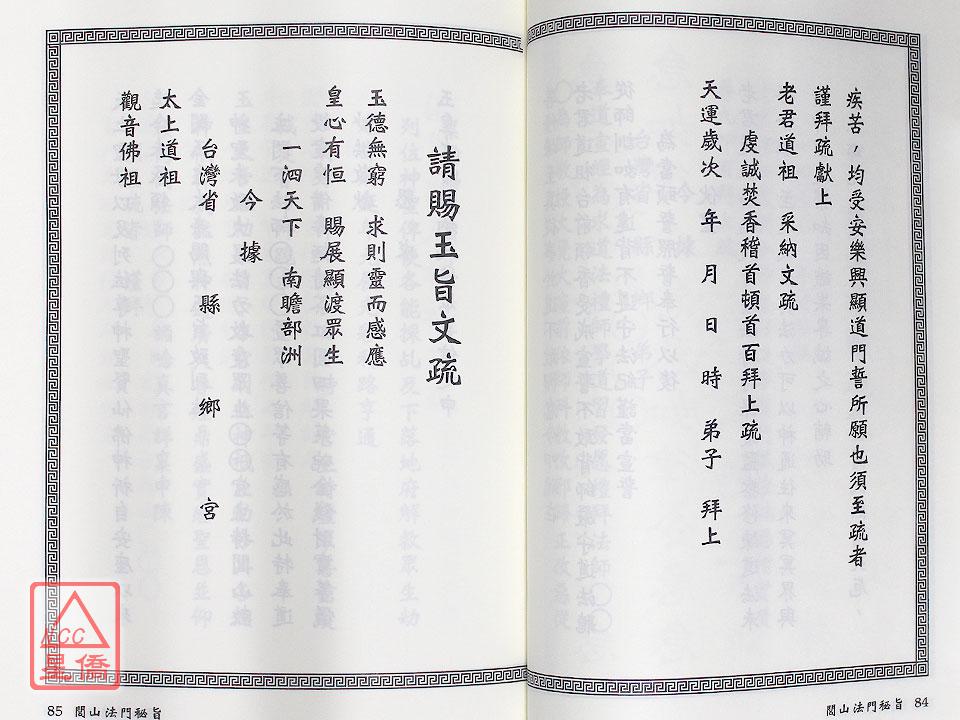 疾苦，均受安樂興顯道門誓所願也須至疏者
謹拜疏獻上
老君道祖　采納文疏
虔誠焚香稽首頓首百拜上疏
天運歲次　年　月　日　時　弟子　拜上
閭山法門秘旨　84
請賜玉旨文疏
玉德無窮　求則靈而感應
皇心有恒　賜展顯渡眾生
一泗天下　南瞻部洲
今據
台灣省　縣　鄉　宮
太上道祖
觀音佛祖
85　閭山法門秘旨
ACC
星僑